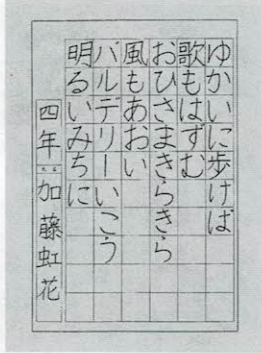 ゆかいに歩けば
歌もはずむ
おひさまきらきら
風もあおい
バルデリーいこう
明るいみちに
四年 加藤虹花